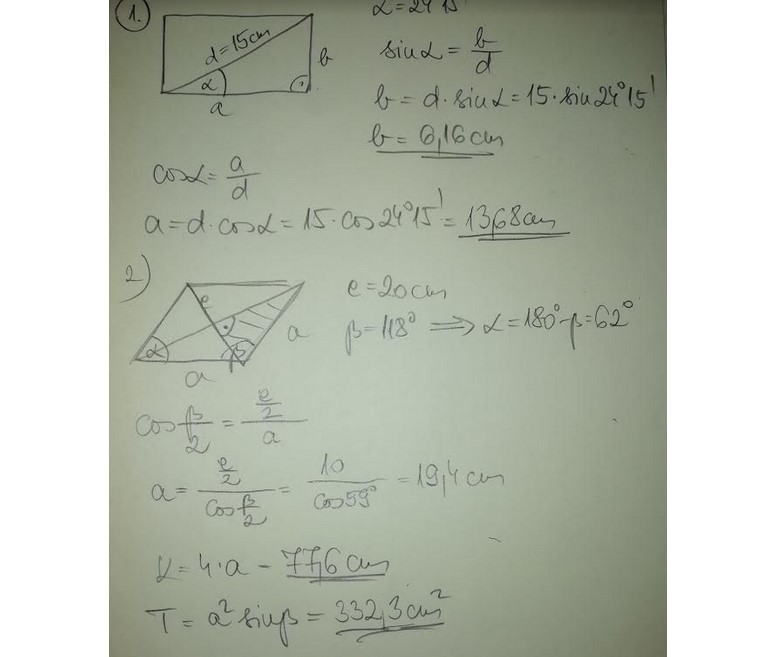 1.
α=24°15'
d=15cm
b
α
a
sinα = b/d
b = d·sinα = 15·sin24°15'
b = 6,16cm
cosα = a/d
a = d·cosα = 15·cos24°15' = 13,68cm
2)
e
a
α
β
a
e = 20cm
β = 118° ⟹ α = 180°-β = 62°
cos β/2 = (e/2)/a
a = (e/2)/(cos β/2) = 10/(cos59°) = 19,4cm
K = 4·a = 77,6cm
T = a² sinβ = 332,3cm²